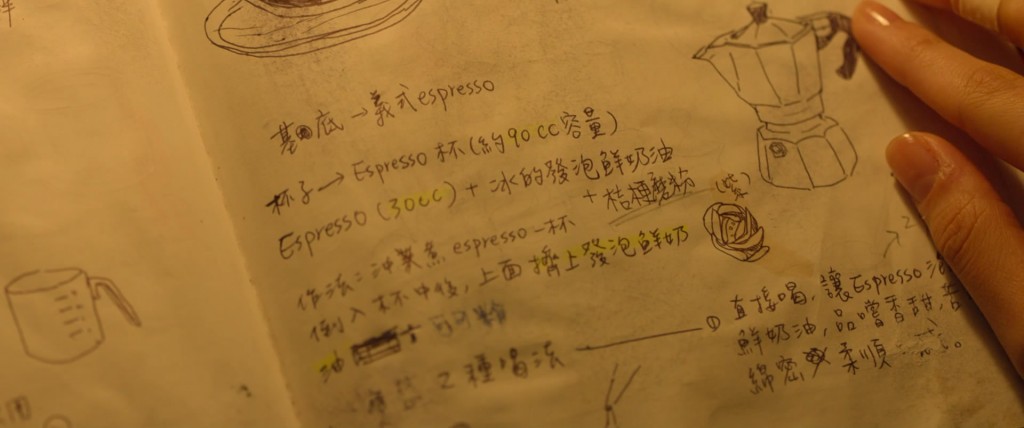 基底→義式espresso
杯子→Espresso杯(約90cc容量)
Espresso(30cc)+冰的發泡鮮奶油
+桔梗糖粉(紫)
作法:沖煮 espresso一杯
倒入杯中後,上面擠上發泡鮮奶
油 可可粉
2種喝法
① 直接喝,讓Espresso
鮮奶油,品嚐香甜,苦
綿密 柔順